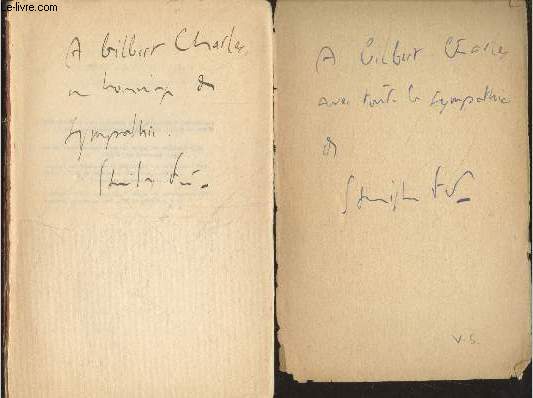 © le-livre.com
A Gilbert Charles
en hommage de
sympathie.
A Gilbert Charles
avec toute la sympathie
de
V.S.